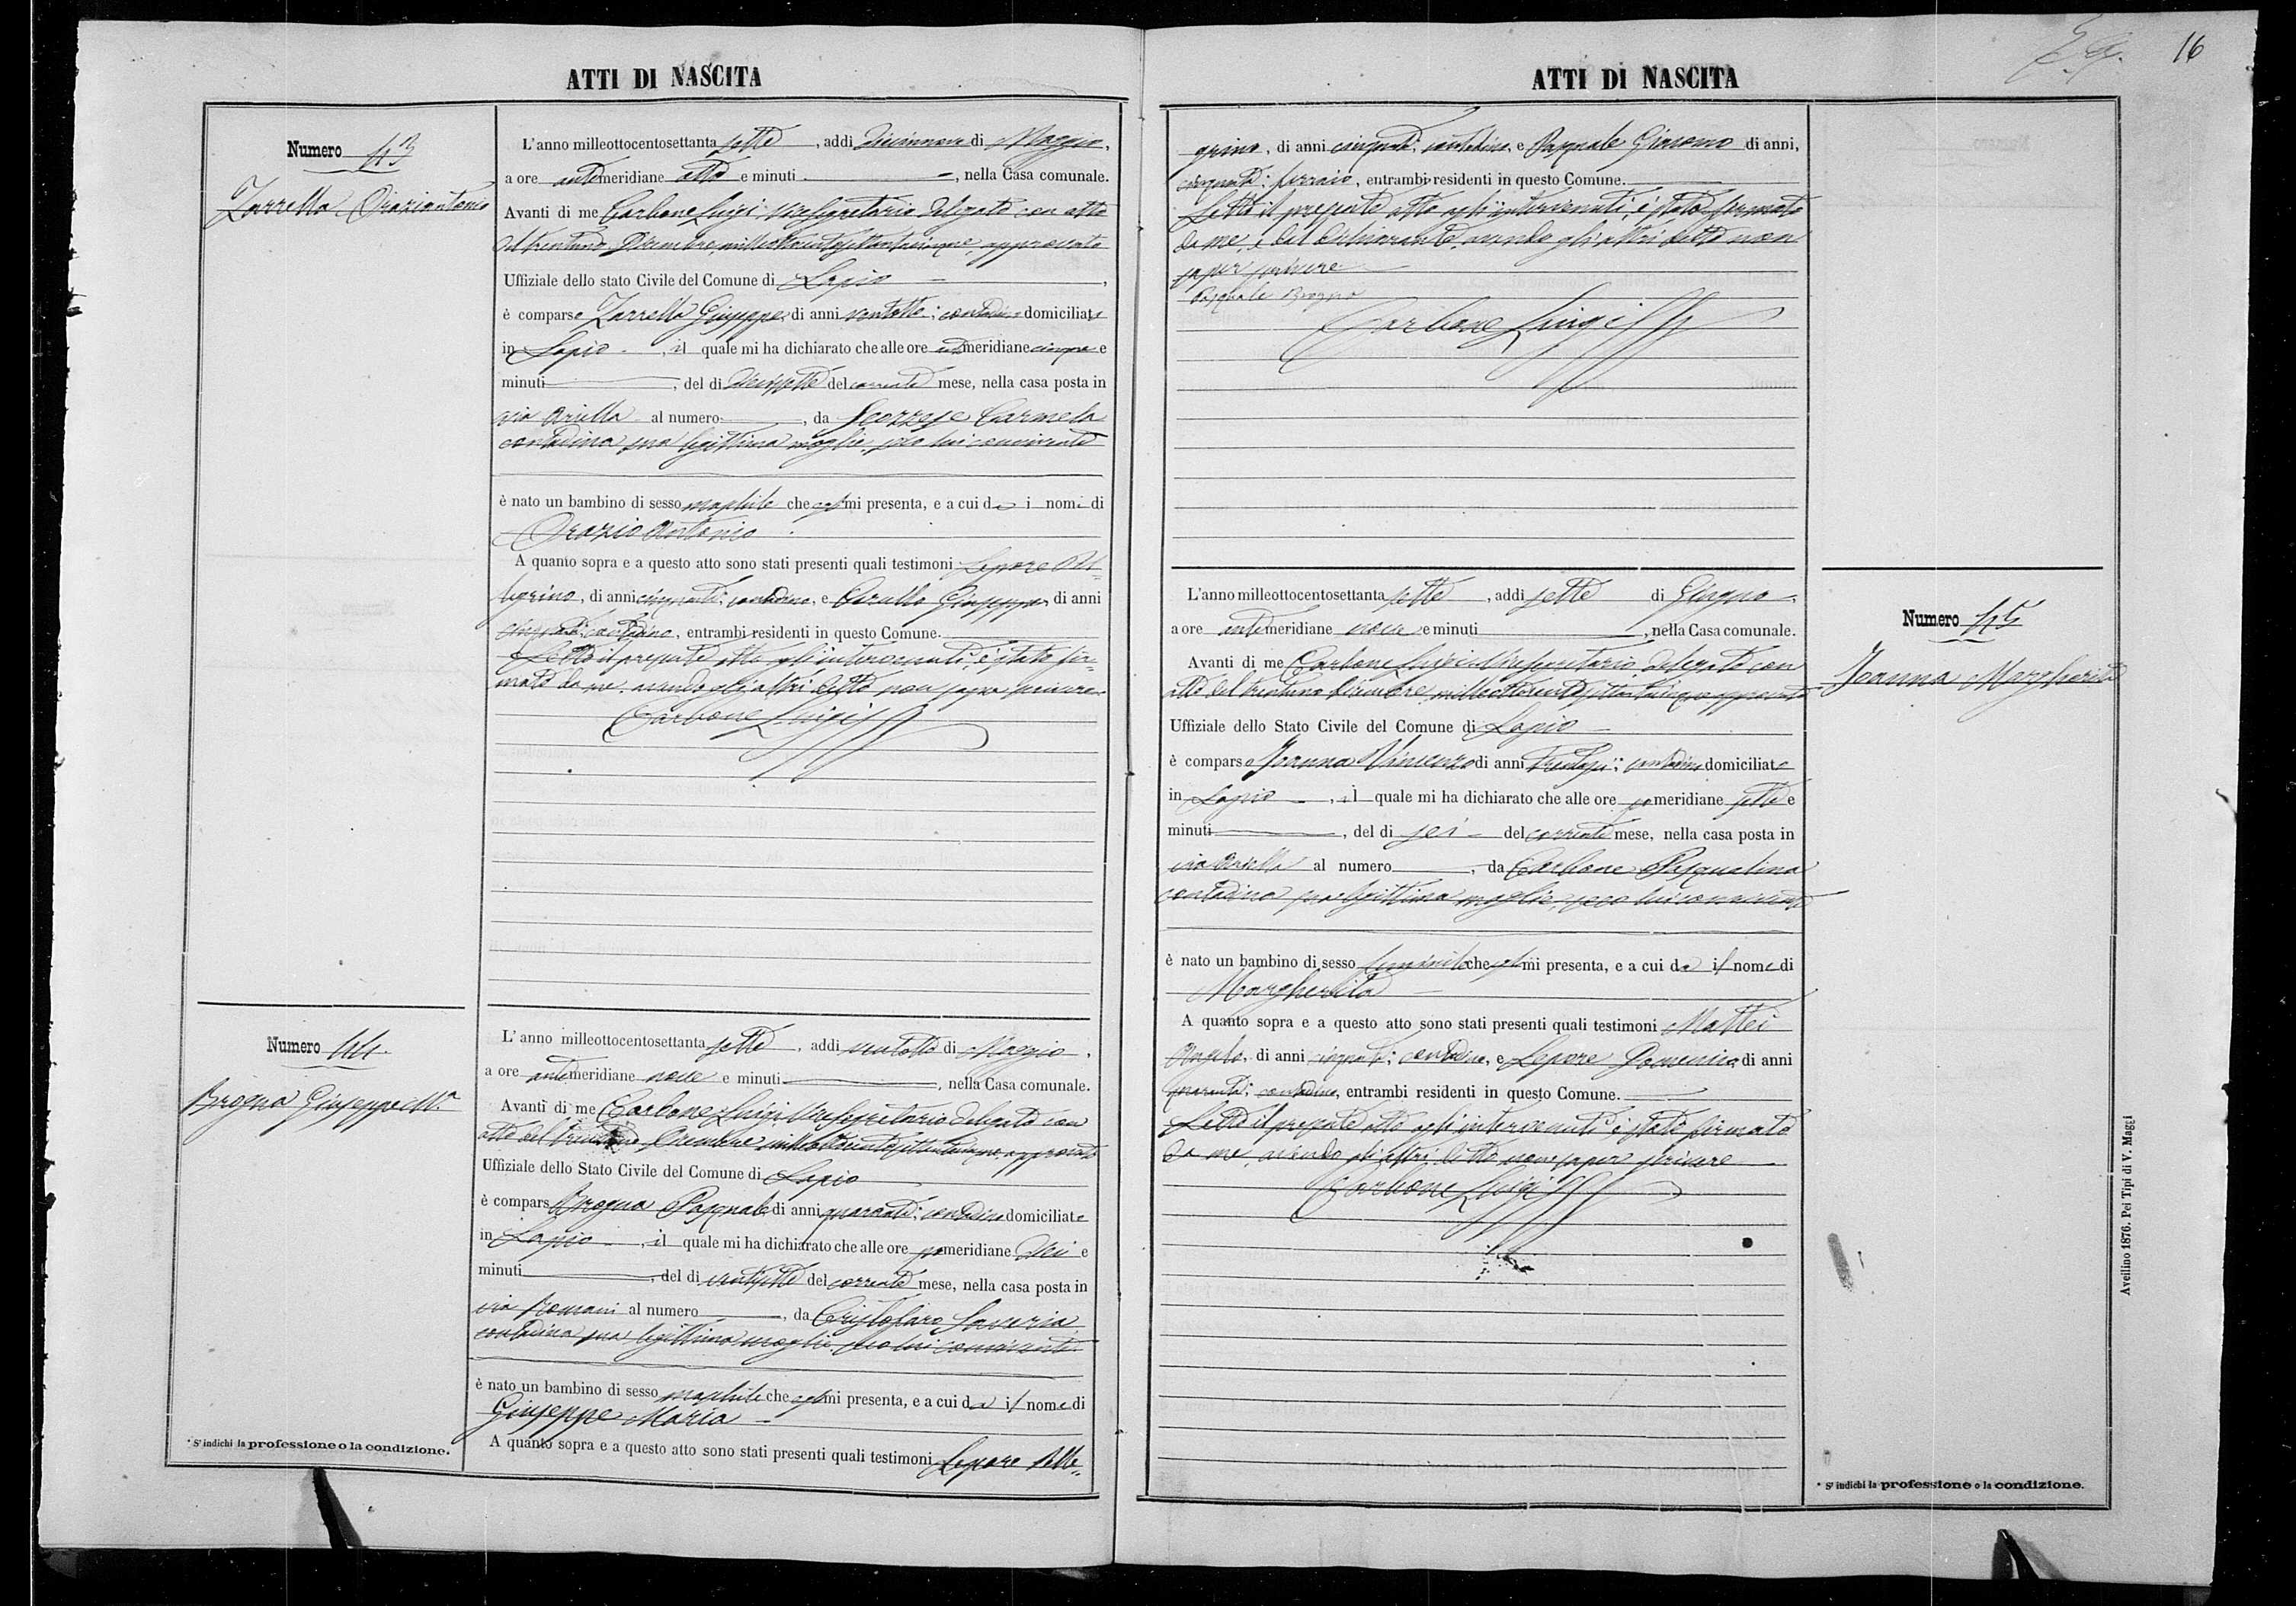 16
ATTI DI NASCITA
Numero 43
Zarrella Oraziantonio
L'anno milleottocentosettanta sette, addi diecinnove di Maggio,
a ore antimeridiane otto e minuti, nella Casa comunale.
Avanti di me Carbone Luigi Vicesegretario delegato con atto
del trentuno Dicembre milleottocentosettantacinque, approvato
Uffiziale dello stato Civile del Comune di Lapio
è comparso Zarrella Giuseppe, di anni ventotto; contadino domiciliato
in Lapio, il quale mi ha dichiarato che alle ore antimeridiane cinque e
minuti, del dì diecissette del corrente mese, nella casa posta in
via Ariella al numero, da Scozzese Carmela
contadina sua legittima moglie, seco lui convivente
è nato un bambino di sesso maschile che egli mi presenta, e a cui dà i nomi di
Orazio Antonio
A quanto sopra e a questo atto sono stati presenti quali testimoni Lepore Pel=
legrino, di anni cinquanta; contadino, e Carullo Giuseppe, di anni
cinquanta; contadino, entrambi residenti in questo Comune.
Letto il presente atto agli intervenuti, è stato fir=
mato da me, avendo gli altri detto non saper scrivere
Carbone Luigi
Numero 44.
Brogna Giuseppe M.a
L'anno milleottocentosettanta sette, addi ventotto di Maggio,
a ore antimeridiane nove e minuti, nella Casa comunale.
Avanti di me Carbone Luigi Vicesegretario delegato con
atto del trentuno Dicembre milleottocentosettantacinque, approvato
Uffiziale dello Stato Civile del Comune di Lapio
è comparso Brogna Pasquale, di anni quaranta; contadino domiciliato
in Lapio, il quale mi ha dichiarato che alle ore pomeridiane dieci e
minuti, del dì ventisette del corrente mese, nella casa posta in
via Romani al numero, da Cristofaro Saveria
contadina sua legittima moglie, seco lui convivente
è nato un bambino di sesso maschile che egli mi presenta, e a cui dà il nome di
Giuseppe Maria
A quanto sopra e a questo atto sono stati presenti quali testimoni Lepore Pelle=
* S' indichi la professione o la condizione.
ATTI DI NASCITA
grino, di anni cinquanta; contadino, e Pasquale Giacomo di anni,
cinquanta; ferraio, entrambi residenti in questo Comune.
Letto il presente atto agli intervenuti, è stato firmato
da me, e dal dichiarante, avendo gli altri detto non
saper scrivere
Pasquale Brogna
Carbone Luigi
Numero 45
Joanna Margherita
L'anno milleottocentosettanta sette, addi sette di Giugno,
a ore antimeridiane nove e minuti, nella Casa comunale.
Avanti di me Carbone Luigi Vicesegretario delegato con
atto del trentuno Dicembre milleottocentosettantacinque approvato
Uffiziale dello Stato Civile del Comune di Lapio
è comparso Joanna Vincenzo di anni trentasei; contadino domiciliato
in Lapio, il quale mi ha dichiarato che alle ore pomeridiane sette e
minuti, del dì sei del corrente mese, nella casa posta in
via Ariella al numero, da Carbone Pasqualina
contadina sua legittima moglie, seco lui convivente
è nato un bambino di sesso feminile che egli mi presenta, e a cui dà il nome di
Margherita
A quanto sopra e a questo atto sono stati presenti quali testimoni Mattei
Angelo, di anni cinquanta; contadino, e Lepore Domenico, di anni
quaranta; contadino, entrambi residenti in questo Comune.
Letto il presente atto agli intervenuti è stato firmato
da me, avendo gli altri detto non saper scrivere
Carbone Luigi
* S' indichi la professione o la condizione.
Avellino 1876. Pei Tipi di V. Maggi